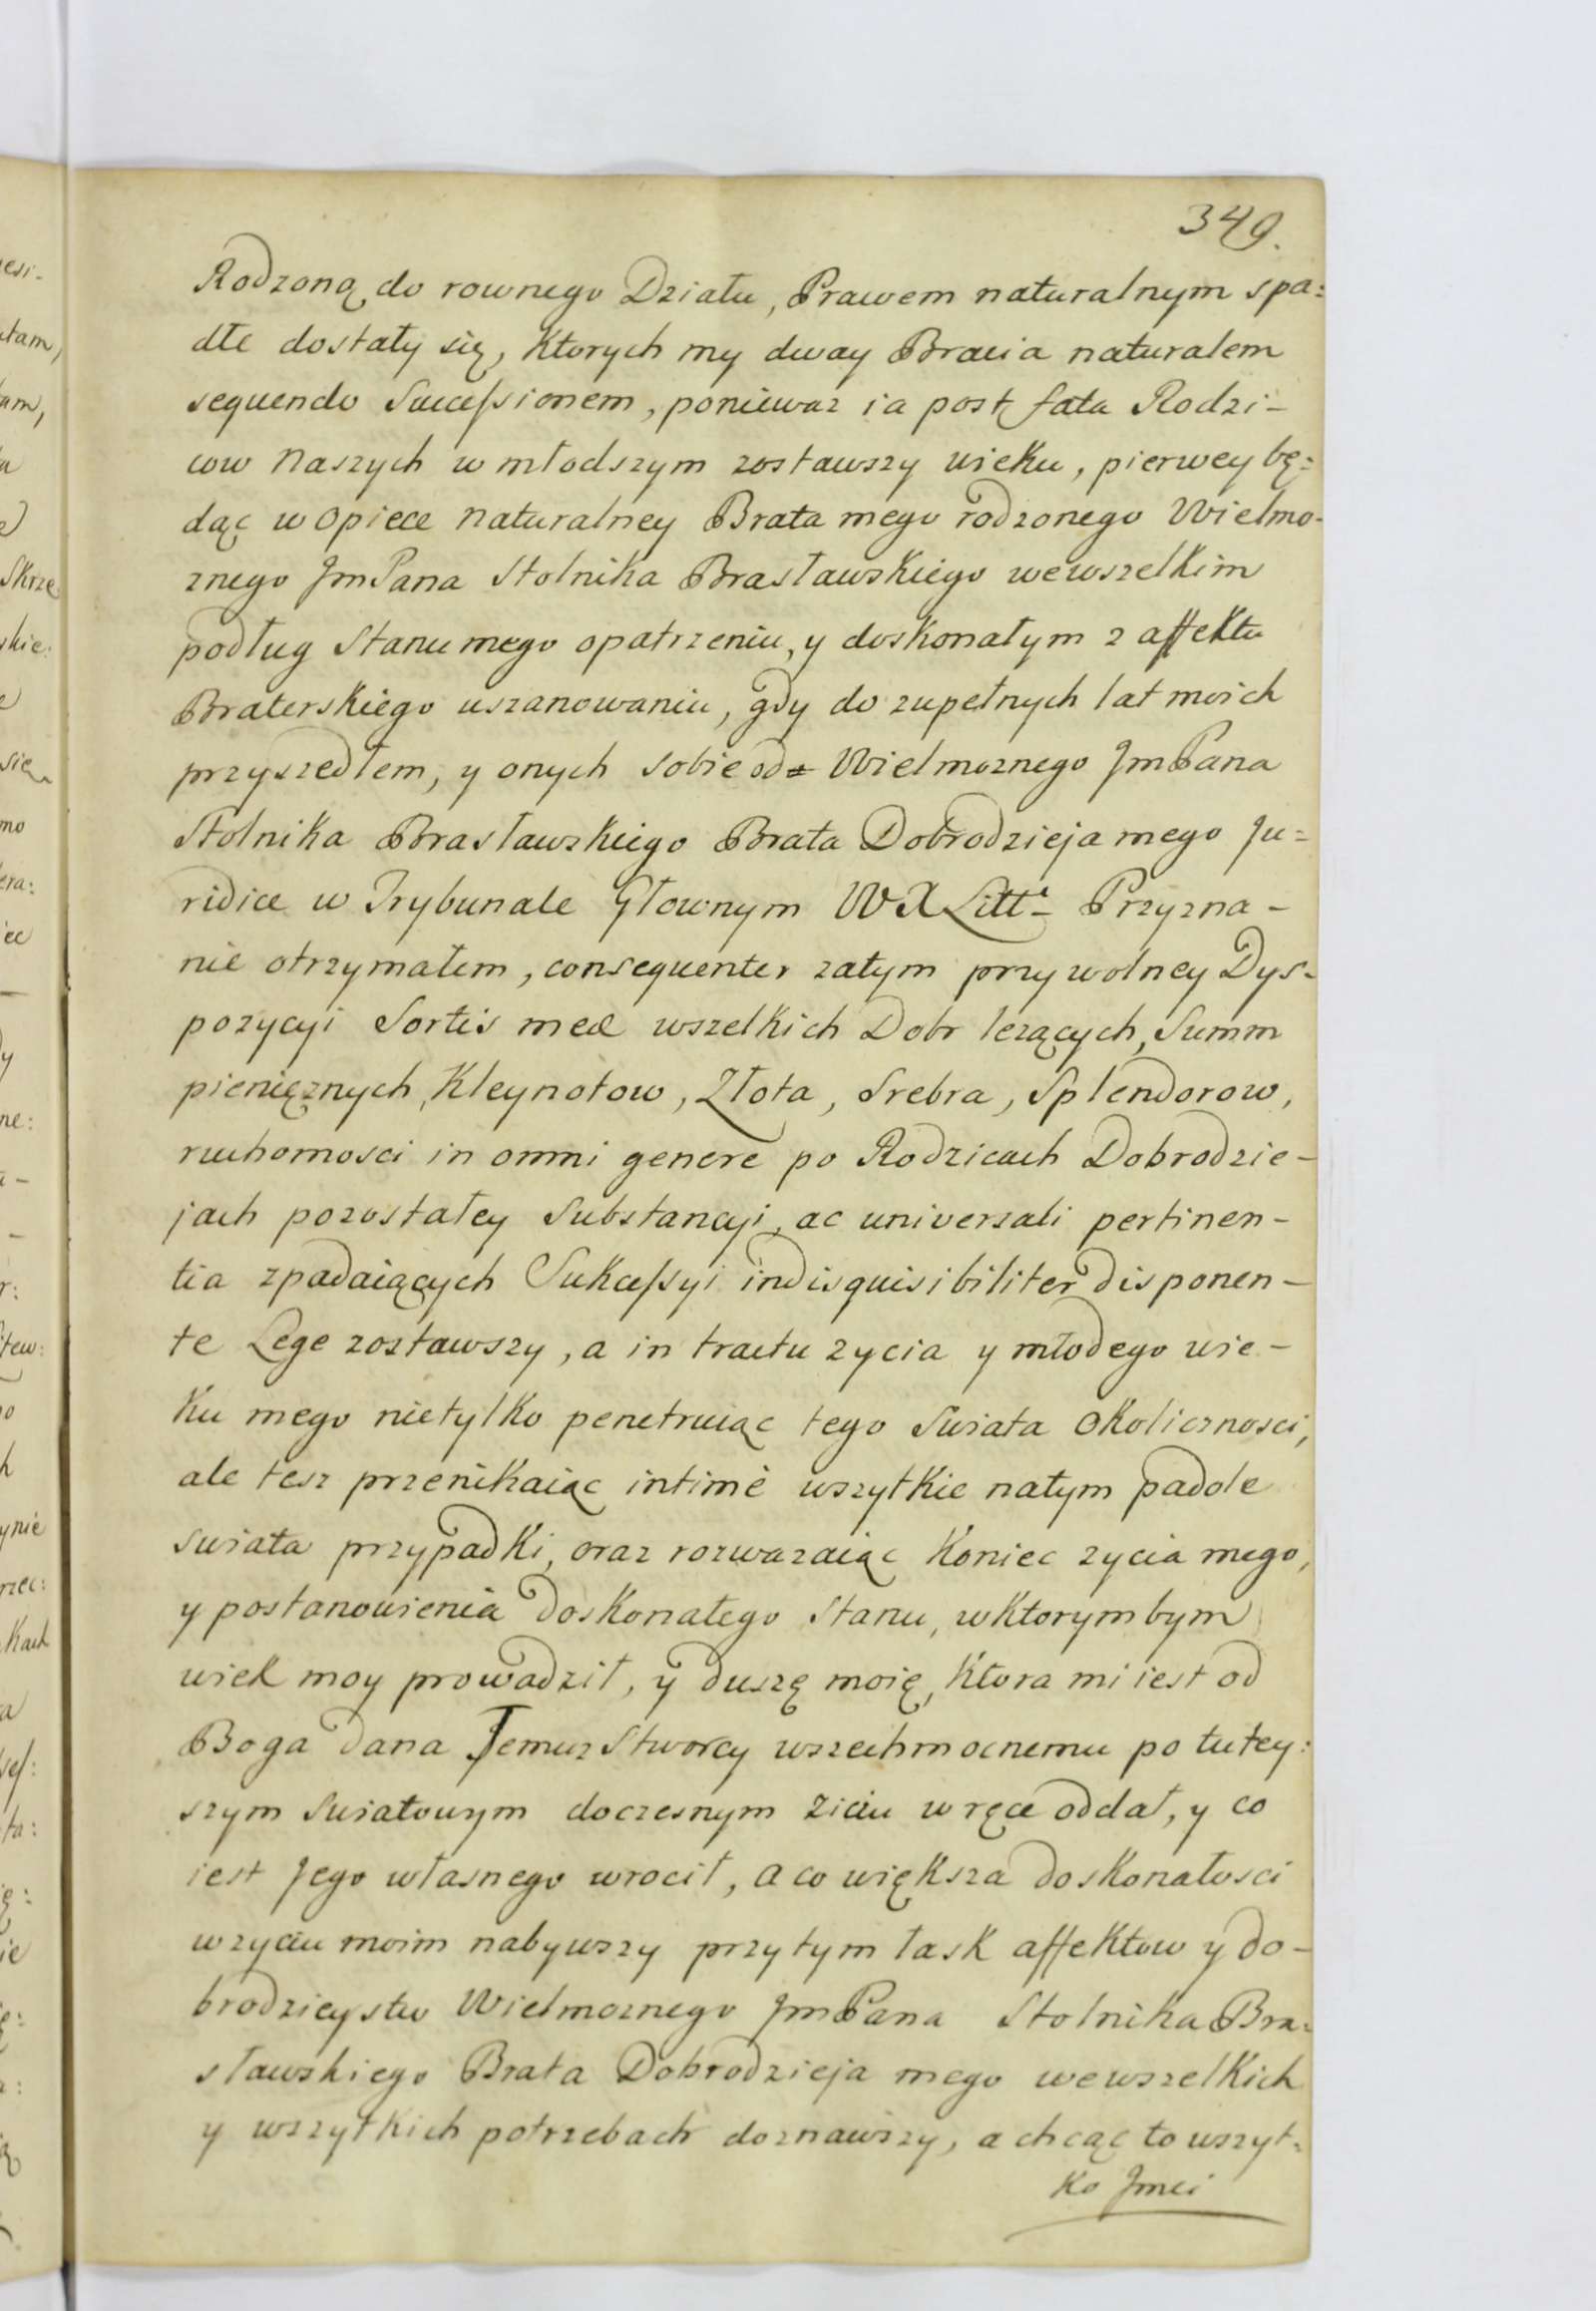 349.
Rodzoną do rownego Działu, Prawem naturalnym spa:
dłe dostały się, Ktorych my dway Bracia naturalem
sequendo Successionem, poniewaz ia post fata Rodzi-
cow Naszych w młodszym zostawszy wieku, pierwey bę:
dąc w opiece naturalney Brata mego rodzonego Wielmo-
znego JmPana Stolnika Brasławskiego wewszelkim
podług Stanu mego opatrzeniu, y doskonałym z affektu
Braterskiego uszanowaniu, gdy do zupełnych lat moich
przyszedłem, y onych sobie od Wielmoznego JmPana
Stolnika Brasławskiego Brata Dobrodzieja mego Ju=
ridice w Trybunale Głownym W X Litt: Przyzna-
nie otrzymałem, consequenter zatym przy wolney Dys-
pozycyi Sortis meæ wszelkich Dobr lezących, Summ
pienięznych, Kleynotow, Złota, Srebra, Splendorow,
ruchomosci in omni genere po Rodzicach Dobrodzie-
jach pozostałey Substancyi, ac universali pertinen-
tia zpadaiących Sukcessyi indisquisibiliter disponen-
te Lege zostawszy, a in tractu zycia y młodego wie-
Ku mego nietylko penetruiąc tego Swiata Okolicznosci,
ale tesz przenikaiąc intimè wszytkie natym padole
swiata przypadki, oraz rozwazaiąc Koniec zycia mego,
y postanowienia doskonałego Stanu, wktorymbym
wiek moy prowadził, y duszę moię, Ktora mi iest od
Boga dana Temuz Stworcy wszechmocnemu po tutey:
szym Swiatowym doczesnym ziciu w ręce oddał, y co
iest Jego własnego wrocił, a co większa doskonałosci
wzyciu moim nabywszy przytym łask affektow y do-
brodzieystw Wielmoznego JmPana Stolnika Bra:
sławskiego Brata Dobrodzieja mego wewszelkich
y wszytkich potrzebach doznawszy, a chcąc to wszyt:
ko Jmci